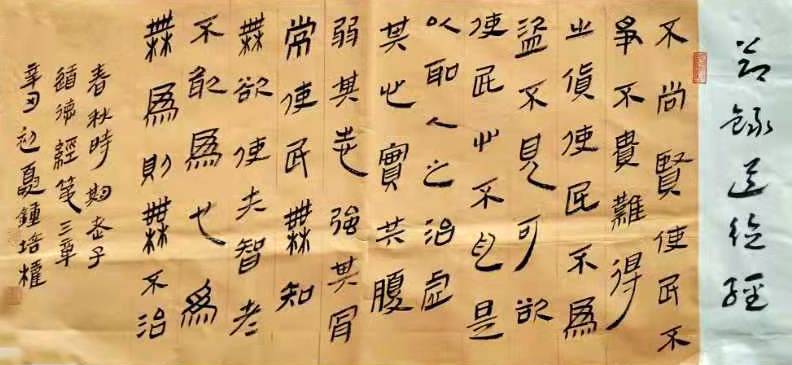 節錄道德經
不尚賢使民不
爭不貴難得
之貨使民不爲
盜不見可欲
使民心不乱是
以聖人之治虛
其心實其腹
弱其志強其骨
常使民無知
無欲使夫智者
不敢爲也爲
無爲則無不治
春秋時期老子
道德經第三章
辛丑初夏鍾培權